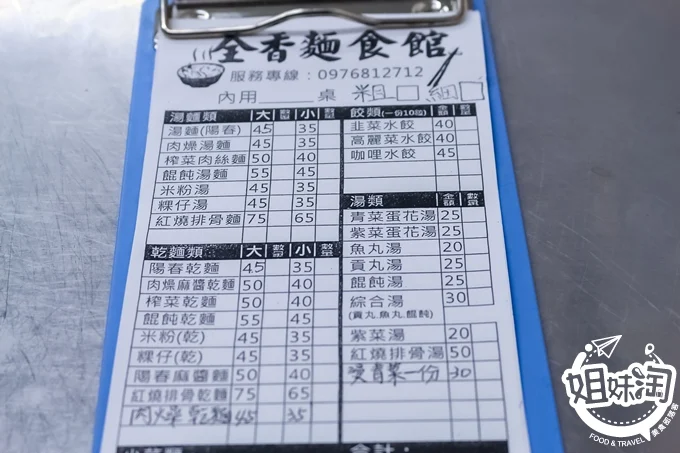 全香麵食館
服務專線：0976812712
內用____桌 粗□ 細□
湯麵類 大 數量 小 數量
湯麵(陽春) 45 35
肉燥湯麵 45 35
榨菜肉絲麵 50 40
餛飩湯麵 55 45
米粉湯 45 35
粿仔湯 45 35
紅燒排骨麵 75 65
乾麵類 大 數量 小 數量
陽春乾麵 45 35
肉燥麻醬乾麵 50 40
榨菜乾麵 50 40
餛飩乾麵 55 45
米粉(乾) 45 35
粿仔(乾) 45 35
陽春麻醬麵 50 40
紅燒排骨乾麵 75 65
肉燥乾麵 45 35
餃類(一份10粒) 金額 數量
韭菜水餃 40
高麗菜水餃 40
咖哩水餃 45
湯類 金額 數量
青菜蛋花湯 25
紫菜蛋花湯 25
魚丸湯 20
貢丸湯 25
餛飩湯 25
綜合湯 30
(貢丸.魚丸.餛飩)
紫菜湯 20
紅燒排骨湯 50
燙青菜一份 30
合計：
姐妹淘
FOOD & TRAVEL
美食部落客